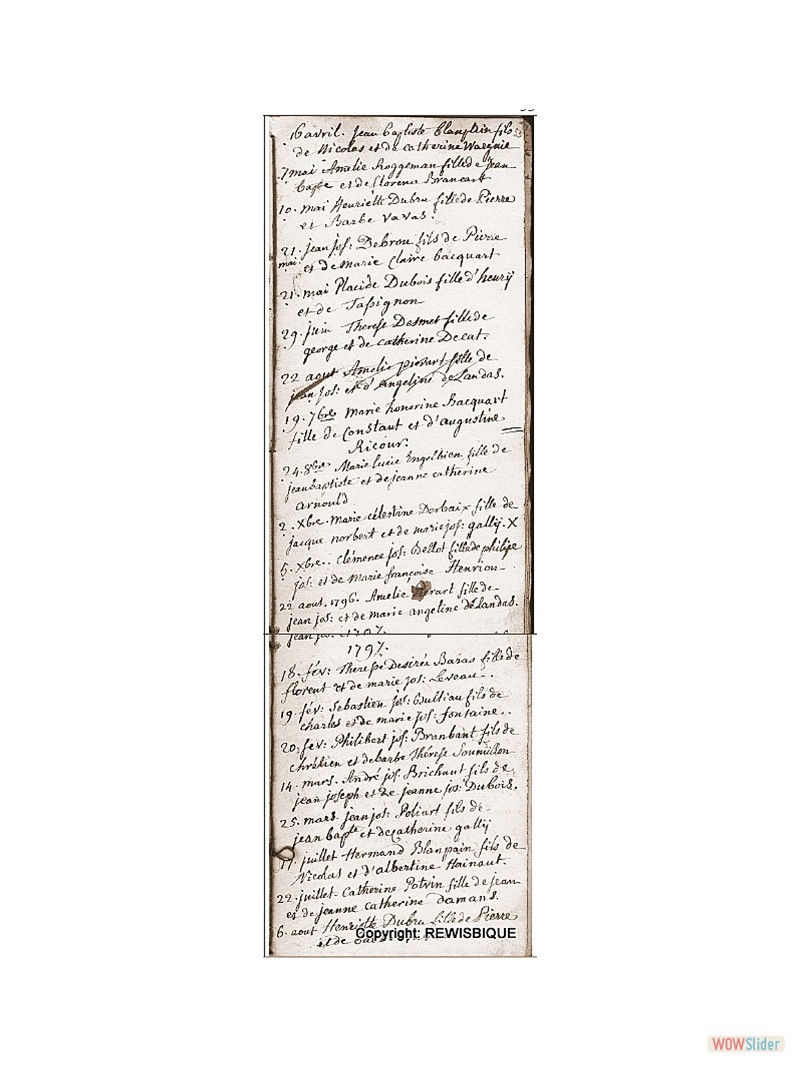 53
16 avril. Jean baptiste Blanpain fils
de Nicolas et de catherine Waegnie
7 mai Amelie Roggeman fille de Jean
bapte et de florence Brancart
10. mai Henriette Dubru fille de Pierre
et Barbe vavas.
21. jean jos: Debrou fils de Pierre
mai. et de marie Claire bacquart
21. mai Placide Dubois fille d'henrÿ
et de Tassignon
29. juin Therese Desmet fille de
george et de catherine Decat.
22 aout Amelie pierart fille de
jean jos: et d'angeline de Landas.
19. 7bre marie honorine Bacquart
fille de Constant et d'augustine
Ricour.
24. 8bre Marie lucie Engelbien fille de
jean baptiste et de jeanne catherine
arnould
2. Xbre. Marie célestine Derbaix fille de
jacque norbert et de marie jos: gallij. X
5. Xbre.. clémence jos: Bellot fille de philipe
jos: et de Marie françoise Henrion
22 aout. 1796. Amelie pierart fille de
jean jos: et de marie angeline de Landas.
jean jos: 1797.
1797.
18. fév: Therese Desirée Baras fille de
florent et de marie jos: Leveau..
19. fév: Sebastien jos: Gulliau fils de
charles et de marie jos: fontaine..
20. fev: Philibert jos: Branbant fils de
chrétien et de barbe Thérese Soumillon
14. mars. André jos: Brichaut fils de
jean joseph et de jeanne jos: Dubois.
25. mars. jean jos: Poliart fils de
jean bapte et de Catherine gallij
17. juillet Hermand Blanpain fils de
Nicolas et d'albertine Hainaut.
22. juillet. Catherine Potvin fille de jean
et de jeanne catherine damans.
6. aout Henriette Dubru fille de Pierre
et de
Copyright: REWISBIQUE
WOWSlider